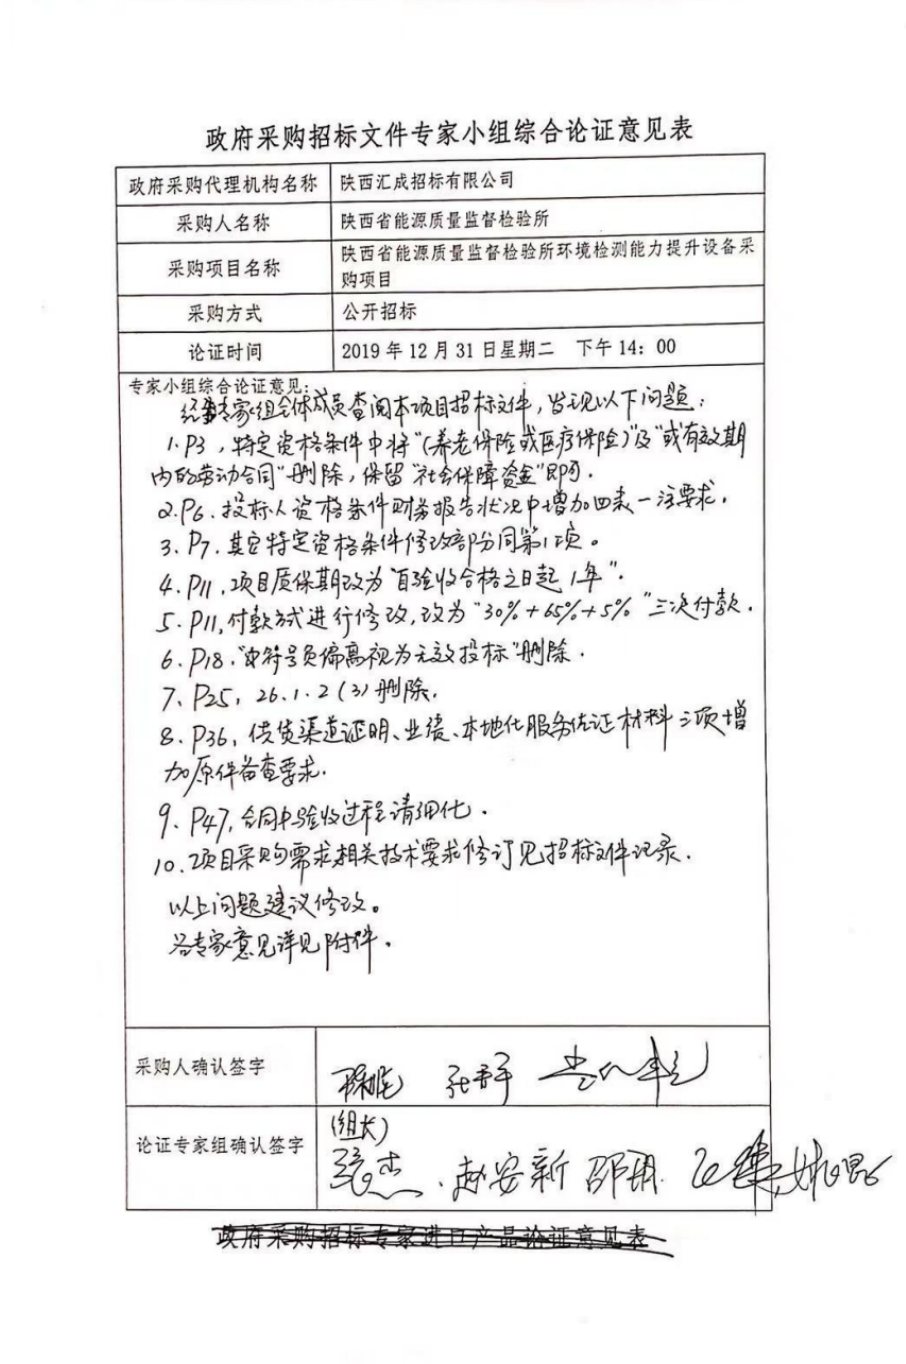 政府采购招标文件专家小组综合论证意见表
政府采购代理机构名称 陕西汇成招标有限公司
采购人名称 陕西省能源质量监督检验所
采购项目名称 陕西省能源质量监督检验所环境检测能力提升设备采
购项目
采购方式 公开招标
论证时间 2019年12月31日星期二 下午14:00
专家小组综合论证意见:
经专家组全体成员查阅本项目招标文件,发现以下问题:
1.P3,特定资格条件中将“(养老保险或医疗保险)”及“或有效期
内的劳动合同”删除,保留“社会保障资金”即可.
2.P6.投标人资格条件财务报告状况中增加四表一注要求.
3.P7.其它特定资格条件修改部分同第1项。
4.P11,项目质保期改为“自验收合格之日起1年”.
5.P11,付款方式进行修改,改为“30%+65%+5%”三次付款.
6.P18.“ 符号负偏离视为无效投标”删除.
7.P25,26.1.2(3)删除.
8.P36,供货渠道证明、业绩、本地化服务佐证材料三项增
加原件备查要求.
9.P47,合同中验收过程请细化.
10.项目采购需求相关技术要求修订见招标文件记录.
以上问题建议修改。
各专家意见详见附件.
采购人确认签字
论证专家组确认签字 (组长)
赵安新
政府采购招标专家进口产品论证意见表